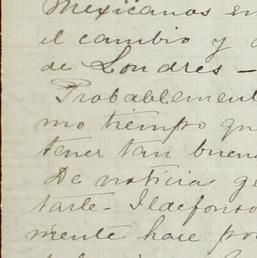 Mexicanos en
el cambio y
de Londres —
Probablement
mo tiempo qu
tener tan buena
De noticias ge
tarte - Ildefonso
mente hace po